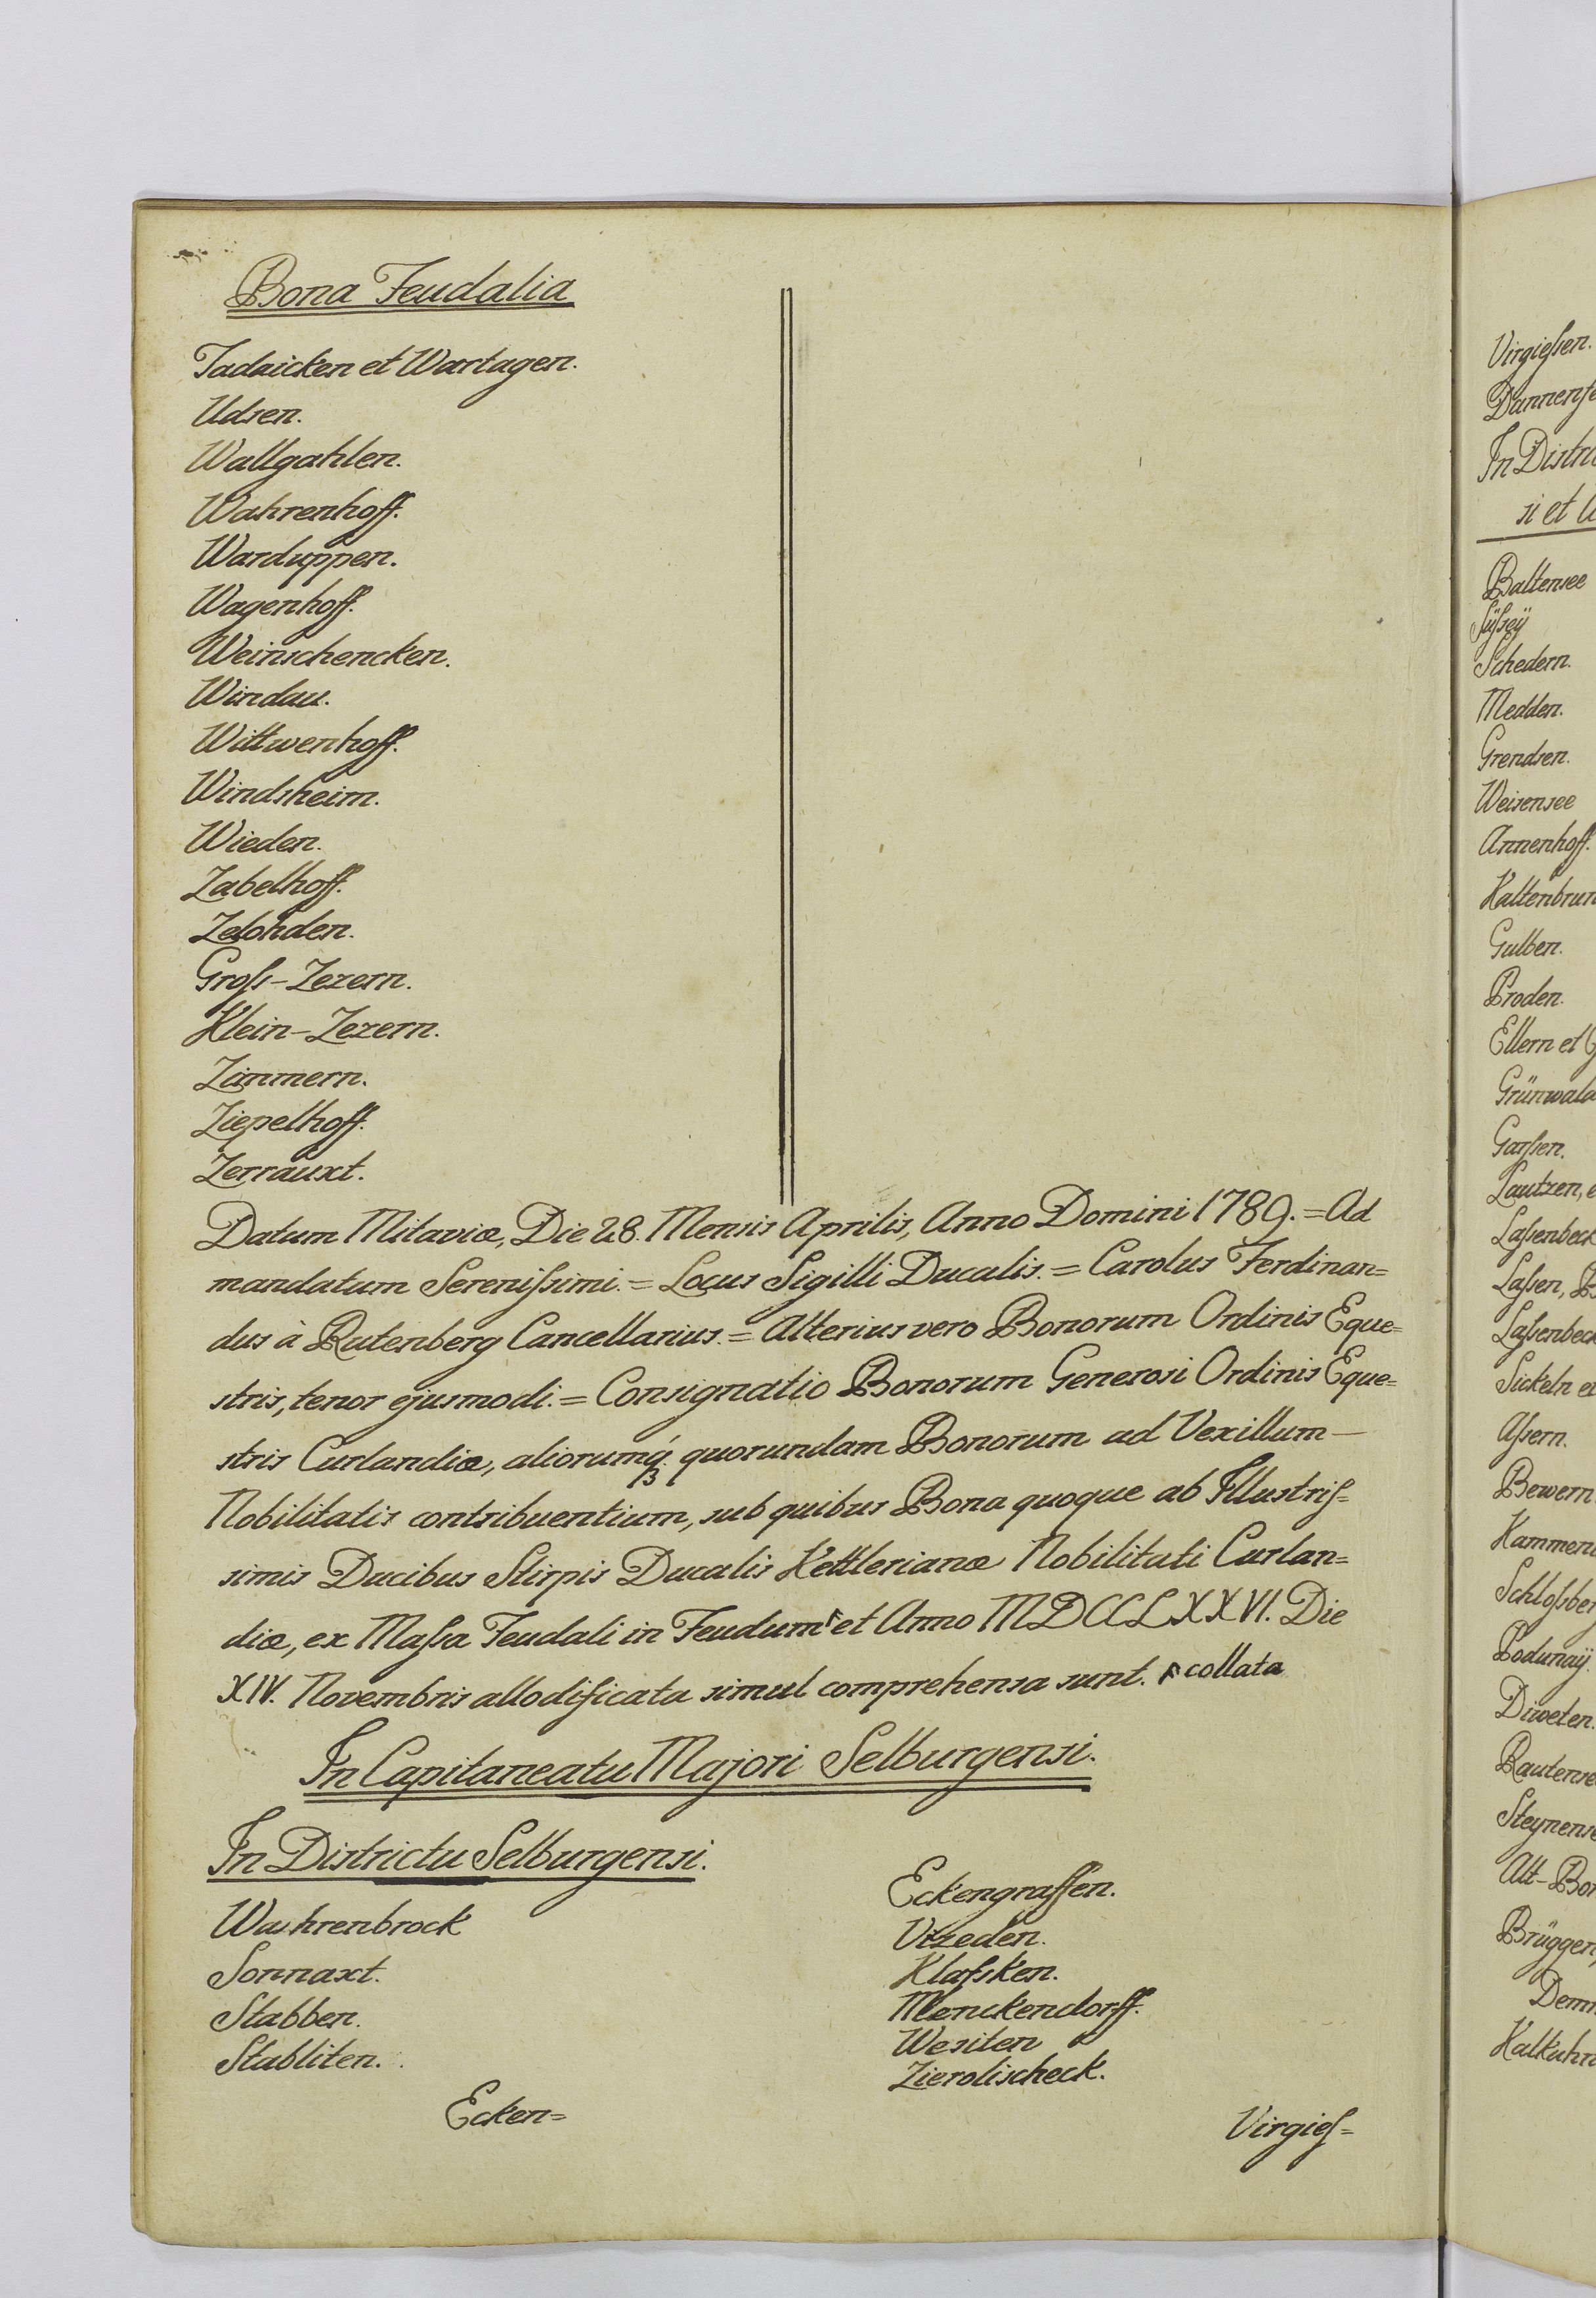 Bona Feudalia
Tadaicken et Wartagen.
Udsen.
Wallgahlen.
Wahrenhoff.
Warduppen.
Wagenhoff.
Weinschencken.
Windau.
Wittwenhoff.
Windsheim.
Wieden.
Zabelhoff.
Zelohden.
Groſs-Zezern.
Klein-Zezern.
Zimmern.
Ziepelhoff.
Zerrauxt.
Datum Mitaviæ, Die 28. Mensis Aprilis, Anno Domini 1789. = Ad
mandatum Sereniſsimi. = Locus Sigilli Ducalis. = Carolus Ferdinan=
dus à Rutenberg Cancellarius. = Alterius vero Bonorum Ordinis Eque=
stris, tenor ejusmodi. = Consignatio Bonorum Generosi Ordinis Eque=
stris Curlandiæ, aliorumq́ quorundam Bonorum ad Vexillum —
Nobilitatis contribuentium, sub quibus Bona quoque ab Illustriſ=
simis Ducibus Stirpis Ducalis Kettlerianæ Nobilitati Curlan=
diæ, ex Maſsa Feudali in Feudum et Anno MDCCLXXVI. Die
XIV. Novembris allodificata simul comprehensa sunt. collata
In Capitaneatu Majori Selburgensi.
In Districtu Selburgensi.
Wahrenbrock
Sonnaxt.
Stabben.
Stabliten.
Ecken=
Eckengraffen.
Vizeden.
Klaſsken.
Menckendorff.
Wesiten
Zierolischeck.
Virgieſ=
Virgieſsen.
In
si et
Baltensee
Süſseÿ
Schedern.
Medden.
Grendsen.
Weisensee
Annenhoff.
Gulben.
Proden.
Ellern et
Garſsen.
Lautzen,
Laſsen,
Sickeln
Aſsern.
Bewern.
Podunaÿ.
Diweten.
Alt-